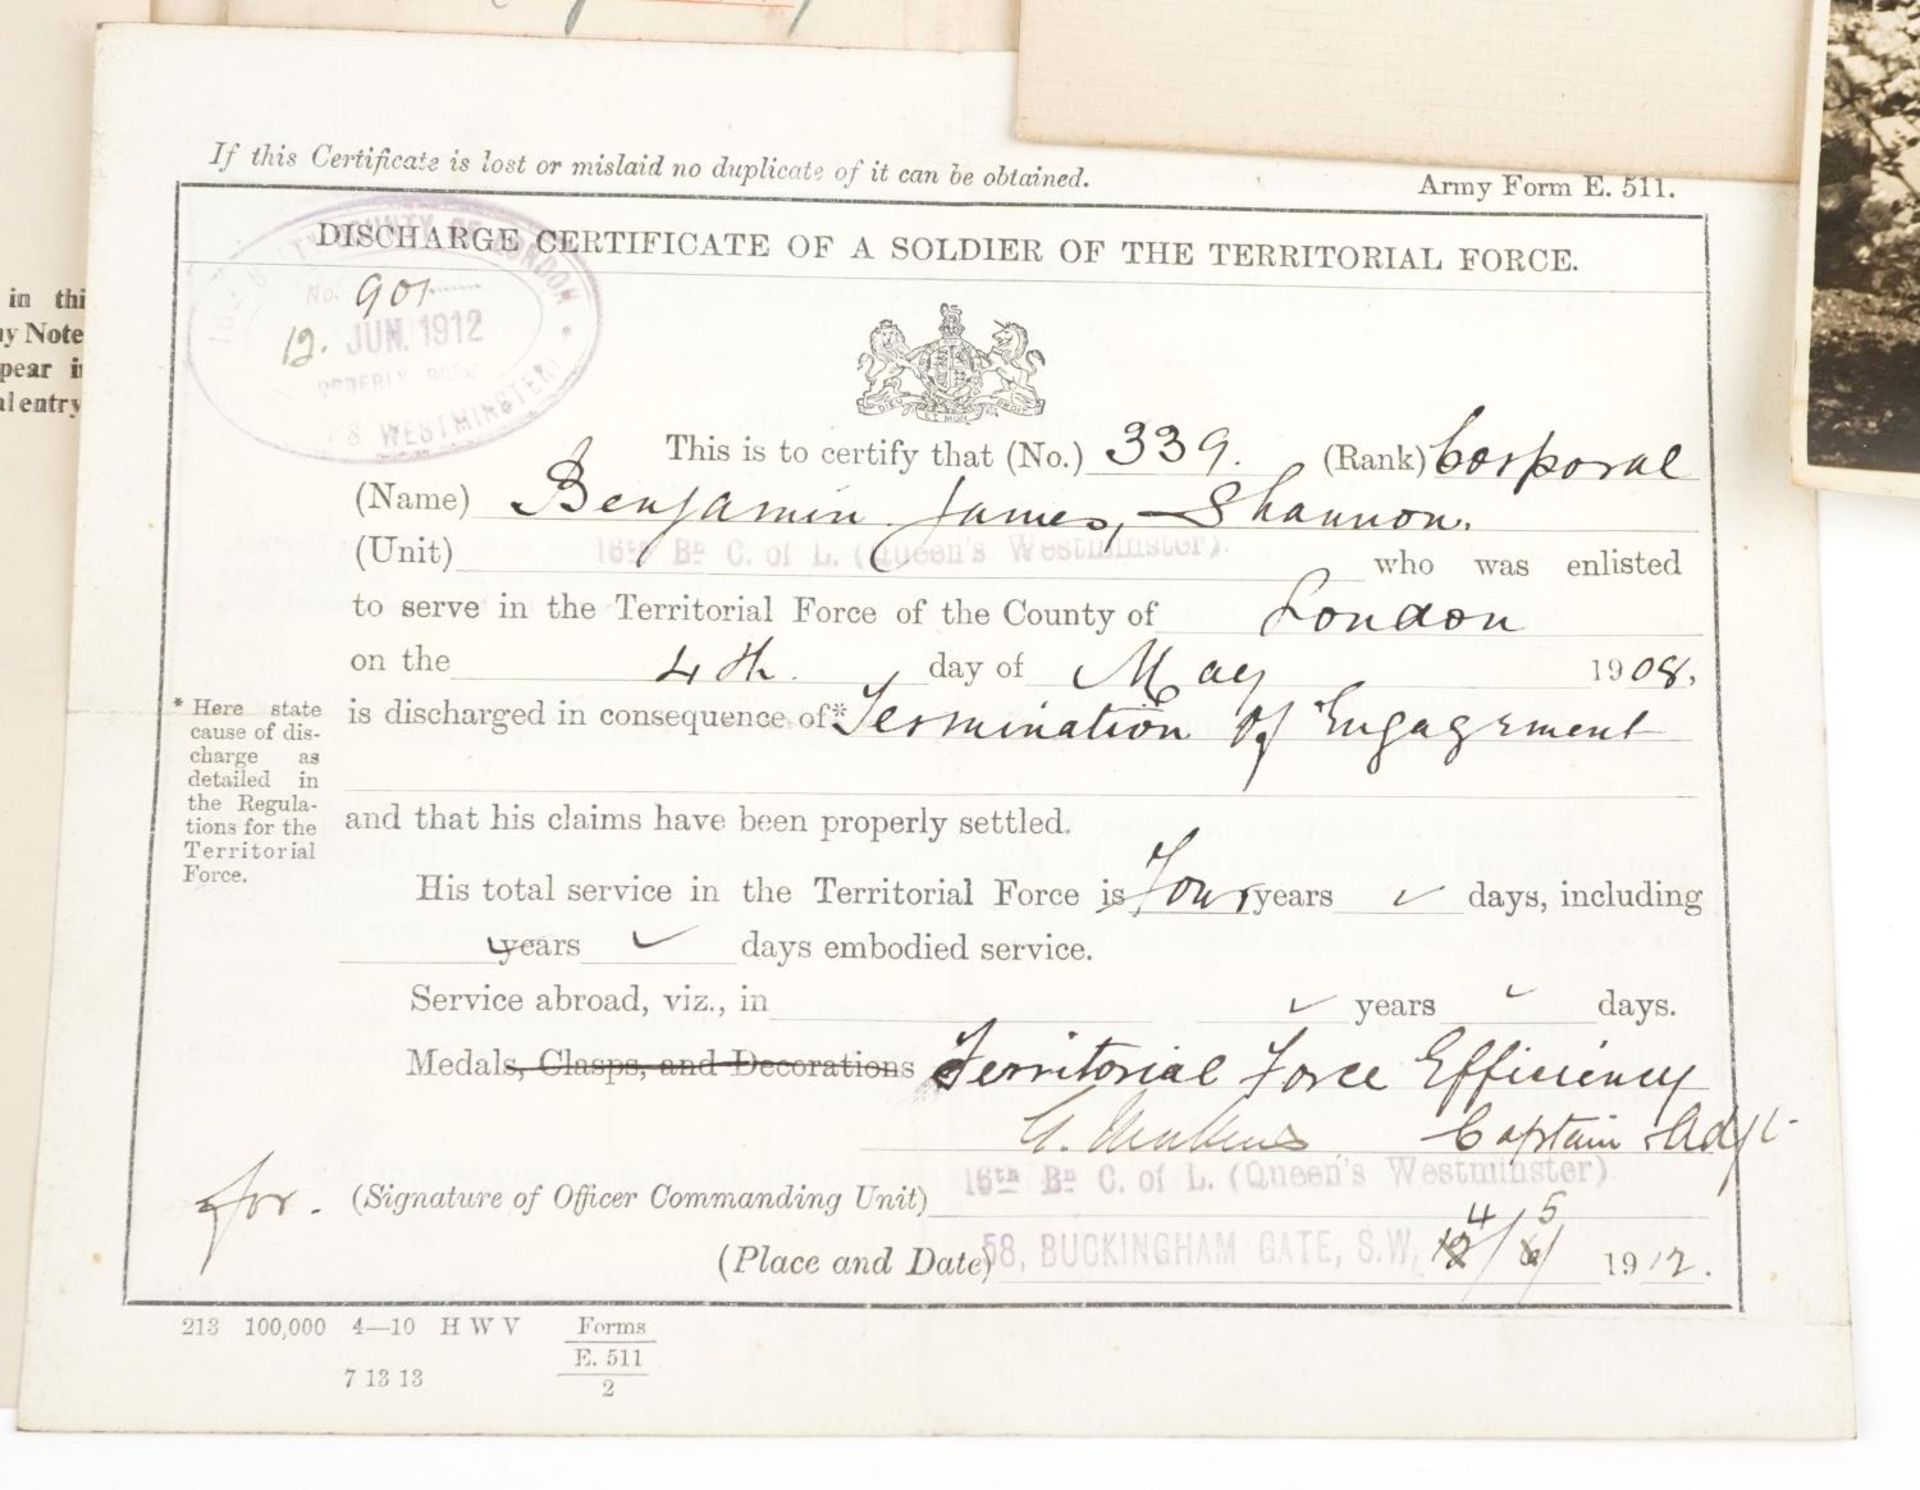 If this Certificate is lost or mislaid no duplicate of it can be obtained.
Army Form E. 511.
DISCHARGE CERTIFICATE OF A SOLDIER OF THE TERRITORIAL FORCE.
COUNTY OF LONDON
No. 901
12. JUN. 1912
WESTMINSTER
in thi
y Note
pear i
al entry
DIEU ET MON DROIT
This is to certify that (No.) 339. (Rank) Corporal
(Name) Benjamin James, Shannon.
(Unit) 16th Bn C. of L. (Queen's Westminster). who was enlisted
to serve in the Territorial Force of the County of London
on the 4th. day of May 1908,
is discharged in consequence of* Termination of Engagement
* Here state
cause of dis-
charge as
detailed in
the Regula-
tions for the
Territorial
Force.
and that his claims have been properly settled.
His total service in the Territorial Force is Four years ✓ days, including
years ✓ days embodied service.
Service abroad, viz., in ✓ years ✓ days.
Medals, Clasps, and Decorations Territorial Force Efficiency
Captain & Adjt
16th Bn C. of L. (Queen's Westminster).
for. (Signature of Officer Commanding Unit)
(Place and Date) 58, BUCKINGHAM GATE, S.W. 4/5 1912.
213 100,000 4—10 H W V Forms
E. 511
2
7 13 13